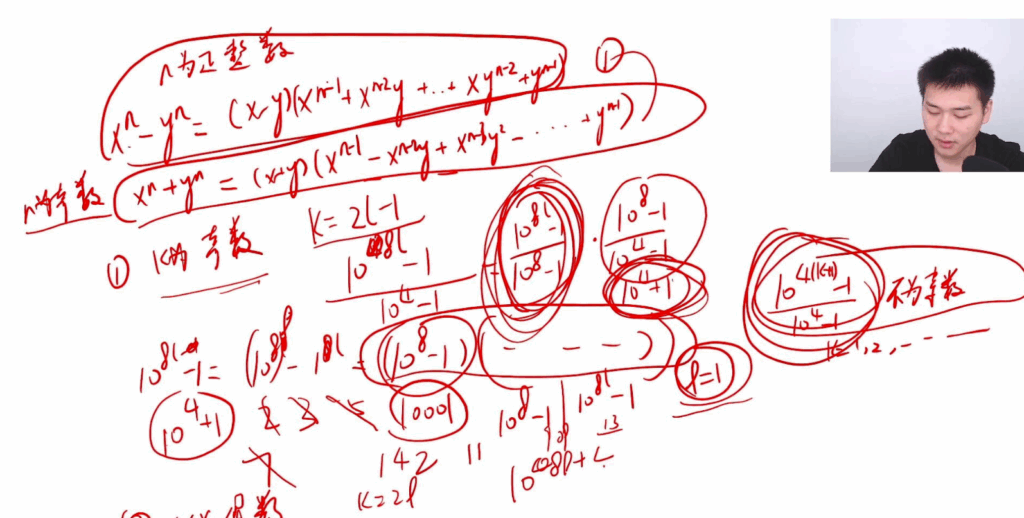 n为正整数
xⁿ-yⁿ = (x-y)(xⁿ⁻¹+xⁿ⁻²y+...+xyⁿ⁻²+yⁿ⁻¹)
①
n为奇数
xⁿ+yⁿ = (x+y)(xⁿ⁻¹-xⁿ⁻²y+xⁿ⁻³y²-.....+yⁿ⁻¹)
① K为奇数 K=2l-1
(10^8l-1)/(10^4-1) = (10^8l-1)/(10^8-1) · (10^8-1)/(10^4-1)
10^4+1
(10^4(k+1)-1)/(10^4-1) 不为素数
K=1,2,---
= (10^8-1)(- - -)
l=1
10^4+1
10001
10^8-1 | 10^8l-1
13
142 11
K=2l